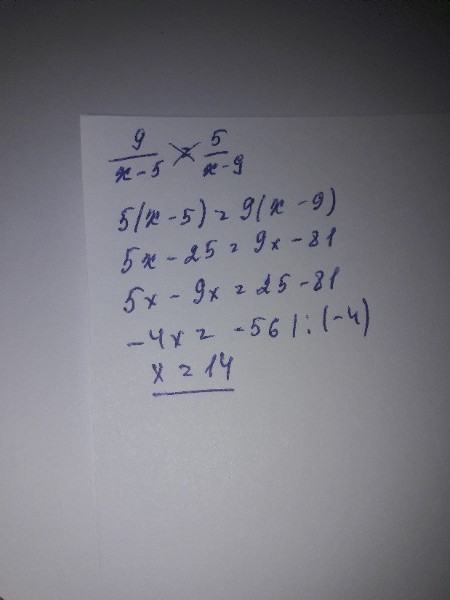 9/(x-5) = 5/(x-9)
5(x-5) = 9(x-9)
5x - 25 = 9x - 81
5x - 9x = 25 - 81
-4x = -56 | : (-4)
x = 14